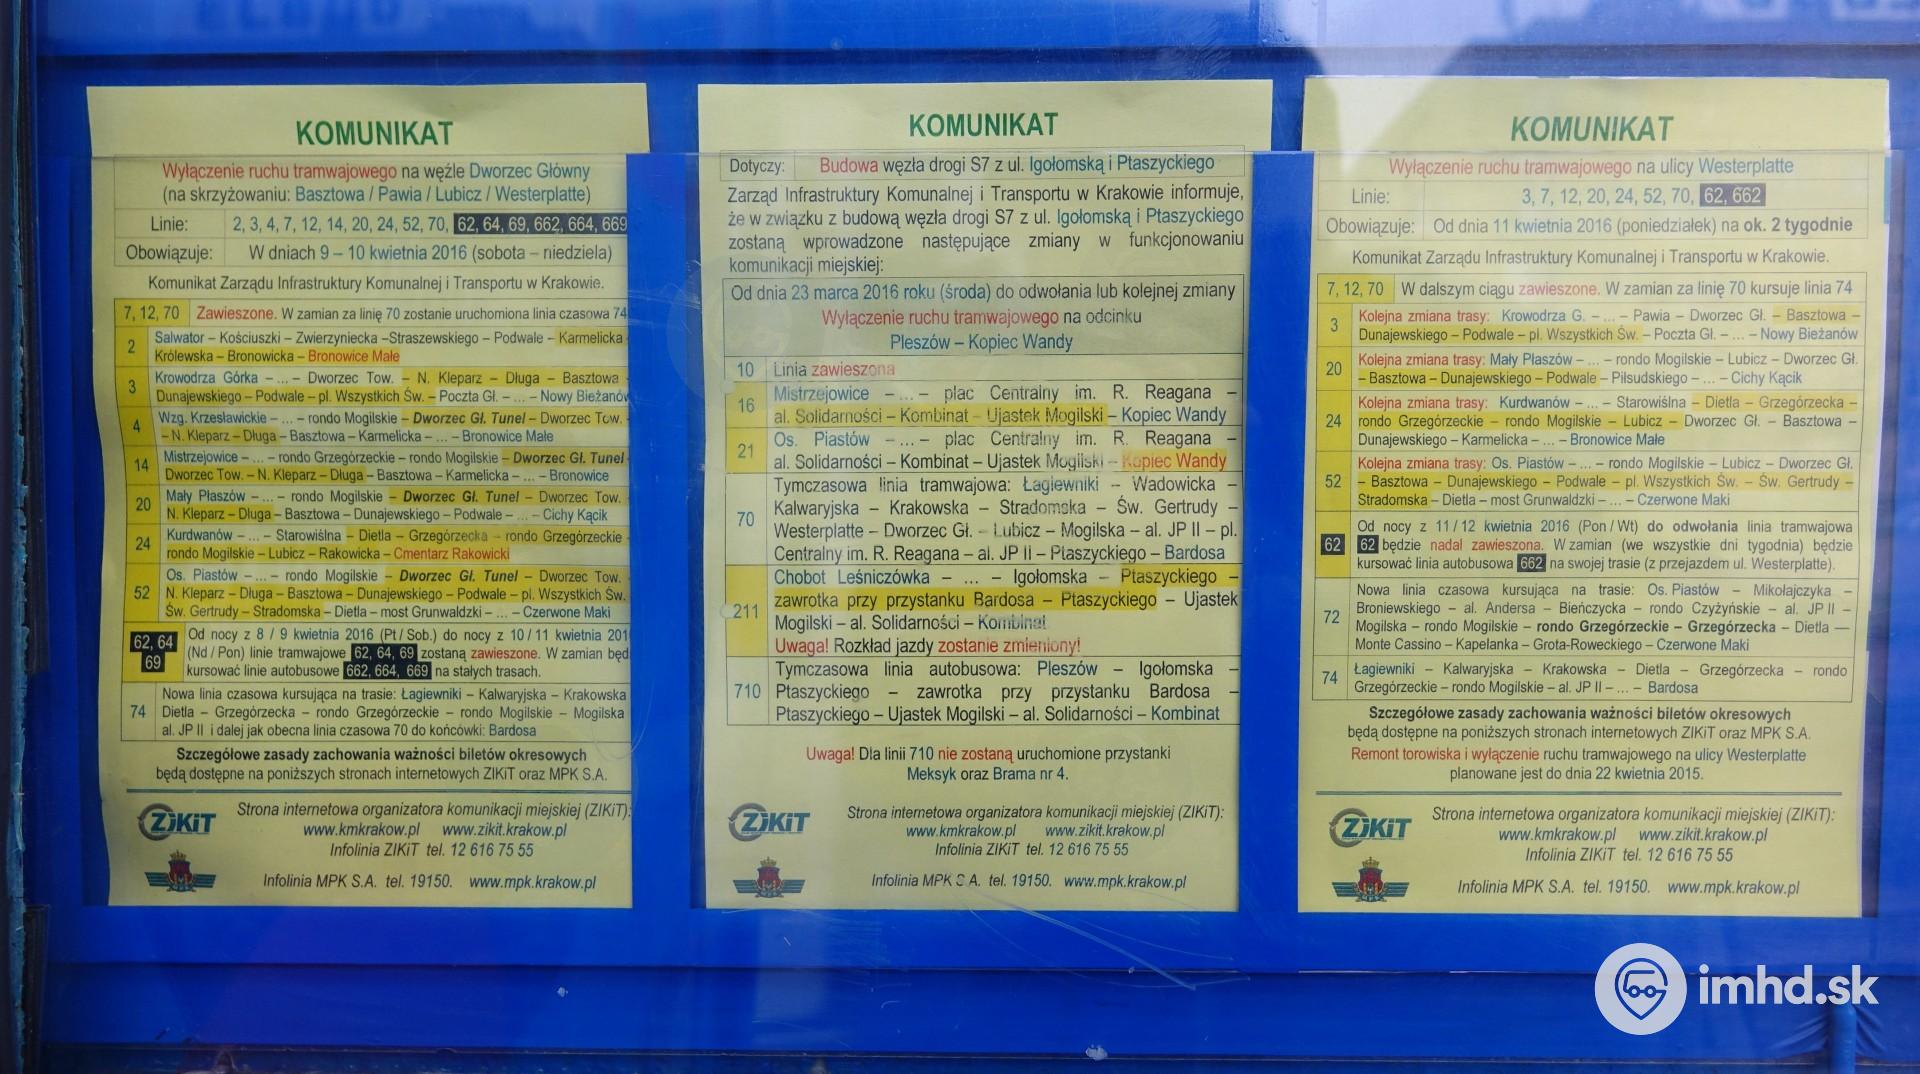 KOMUNIKAT
Wyłączenie ruchu tramwajowego na węźle Dworzec Główny
(na skrzyżowaniu: Basztowa / Pawia / Lubicz / Westerplatte)
Linie: 2, 3, 4, 7, 12, 14, 20, 24, 52, 70, 62, 64, 69, 662, 664, 669
Obowiązuje: W dniach 9 – 10 kwietnia 2016 (sobota – niedziela)
Komunikat Zarządu Infrastruktury Komunalnej i Transportu w Krakowie.
7, 12, 70 Zawieszone. W zamian za linię 70 zostanie uruchomiona linia czasowa 74
2 Salwator – Kościuszki – Zwierzyniecka –Straszewskiego – Podwale – Karmelicka
Królewska – Bronowicka – Bronowice Małe
3 Krowodrza Górka – ... – Dworzec Tow. – N. Kleparz – Długa – Basztowa -
Dunajewskiego – Podwale – pl. Wszystkich Św. – Poczta Gł. – ... – Nowy Bieżanów
4 Wzg. Krzesławickie – ... – rondo Mogilskie – Dworzec Gł. Tunel – Dworzec Tow. -
– N. Kleparz – Długa – Basztowa – Karmelicka – ... – Bronowice Małe
14 Mistrzejowice – ... – rondo Grzegórzeckie - rondo Mogilskie – Dworzec Gł. Tunel -
Dworzec Tow. – N. Kleparz – Długa – Basztowa – Karmelicka – ... – Bronowice
20 Mały Płaszów – ... – rondo Mogilskie – Dworzec Gł. Tunel – Dworzec Tow. -
N. Kleparz – Długa – Basztowa – Dunajewskiego – Podwale – ... – Cichy Kącik
24 Kurdwanów – ... – Starowiślna – Dietla – Grzegórzecka – rondo Grzegórzeckie -
rondo Mogilskie – Lubicz – Rakowicka – Cmentarz Rakowicki
52 Os. Piastów – ... – rondo Mogilskie – Dworzec Gł. Tunel – Dworzec Tow. -
N. Kleparz – Długa – Basztowa – Dunajewskiego – Podwale – pl. Wszystkich Św. -
Św. Gertrudy – Stradomska – Dietla – most Grunwaldzki – ... – Czerwone Maki
62, 64 69 Od nocy z 8 / 9 kwietnia 2016 (Pt / Sob.) do nocy z 10 / 11 kwietnia 201
(Nd / Pon) linie tramwajowe 62, 64, 69 zostaną zawieszone. W zamian będ
kursować linie autobusowe 662, 664, 669 na stałych trasach.
74 Nowa linia czasowa kursująca na trasie: Łagiewniki – Kalwaryjska – Krakowska
Dietla – Grzegórzecka – rondo Grzegórzeckie – rondo Mogilskie – Mogilska
al. JP II i dalej jak obecna linia czasowa 70 do końcówki: Bardosa
Szczegółowe zasady zachowania ważności biletów okresowych
będą dostępne na poniższych stronach internetowych ZIKiT oraz MPK S.A.
ZIKiT Strona internetowa organizatora komunikacji miejskiej (ZIKiT):
www.kmkrakow.pl www.zikit.krakow.pl
Infolinia ZIKiT tel. 12 616 75 55
Infolinia MPK S.A. tel. 19150. www.mpk.krakow.pl
KOMUNIKAT
Dotyczy: Budowa węzła drogi S7 z ul. Igołomską i Ptaszyckiego
Zarząd Infrastruktury Komunalnej i Transportu w Krakowie informuje,
że w związku z budową węzła drogi S7 z ul. Igołomską i Ptaszyckiego
zostaną wprowadzone następujące zmiany w funkcjonowaniu
komunikacji miejskiej:
Od dnia 23 marca 2016 roku (środa) do odwołania lub kolejnej zmiany
Wyłączenie ruchu tramwajowego na odcinku
Pleszów – Kopiec Wandy
10 Linia zawieszona
16 Mistrzejowice – ... – plac Centralny im. R. Reagana –
al. Solidarności – Kombinat – Ujastek Mogilski – Kopiec Wandy
21 Os. Piastów – ... – plac Centralny im. R. Reagana –
al. Solidarności – Kombinat – Ujastek Mogilski – Kopiec Wandy
70 Tymczasowa linia tramwajowa: Łagiewniki – Wadowicka –
Kalwaryjska – Krakowska – Stradomska – Św. Gertrudy –
Westerplatte – Dworzec Gł. – Lubicz – Mogilska – al. JP II – pl.
Centralny im. R. Reagana – al. JP II – Ptaszyckiego – Bardosa
211 Chobot Leśniczówka – ... – Igołomska – Ptaszyckiego –
zawrotka przy przystanku Bardosa – Ptaszyckiego – Ujastek
Mogilski – al. Solidarności – Kombinat
Uwaga! Rozkład jazdy zostanie zmieniony!
710 Tymczasowa linia autobusowa: Pleszów – Igołomska –
Ptaszyckiego – zawrotka przy przystanku Bardosa –
Ptaszyckiego – Ujastek Mogilski – al. Solidarności – Kombinat
Uwaga! Dla linii 710 nie zostaną uruchomione przystanki
Meksyk oraz Brama nr 4.
ZIKiT Strona internetowa organizatora komunikacji miejskiej (ZIKiT):
www.kmkrakow.pl www.zikit.krakow.pl
Infolinia ZIKiT tel. 12 616 75 55
Infolinia MPK S.A. tel. 19150. www.mpk.krakow.pl
KOMUNIKAT
Wyłączenie ruchu tramwajowego na ulicy Westerplatte
Linie: 3, 7, 12, 20, 24, 52, 70, 62, 662
Obowiązuje: Od dnia 11 kwietnia 2016 (poniedziałek) na ok. 2 tygodnie
Komunikat Zarządu Infrastruktury Komunalnej i Transportu w Krakowie.
7, 12, 70 W dalszym ciągu zawieszone. W zamian za linię 70 kursuje linia 74
3 Kolejna zmiana trasy: Krowodrza G. – ... – Pawia – Dworzec Gł. – Basztowa –
Dunajewskiego – Podwale – pl. Wszystkich Św. – Poczta Gł. – ... – Nowy Bieżanów
20 Kolejna zmiana trasy: Mały Płaszów – ... – rondo Mogilskie – Lubicz – Dworzec Gł.
– Basztowa – Dunajewskiego – Podwale – Piłsudskiego – ... – Cichy Kącik
24 Kolejna zmiana trasy: Kurdwanów – ... – Starowiślna – Dietla – Grzegórzecka –
rondo Grzegórzeckie – rondo Mogilskie – Lubicz – Dworzec Gł. – Basztowa –
Dunajewskiego – Karmelicka – ... – Bronowice Małe
52 Kolejna zmiana trasy: Os. Piastów – ... – rondo Mogilskie – Lubicz – Dworzec Gł.
– Basztowa – Dunajewskiego – Podwale – pl. Wszystkich Św. – Św. Gertrudy –
Stradomska – Dietla – most Grunwaldzki – ... – Czerwone Maki
62 Od nocy z 11 / 12 kwietnia 2016 (Pon / Wt) do odwołania linia tramwajowa
62 będzie nadal zawieszona. W zamian (we wszystkie dni tygodnia) będzie
kursować linia autobusowa 662 na swojej trasie (z przejazdem ul. Westerplatte).
72 Nowa linia czasowa kursująca na trasie: Os. Piastów – Mikołajczyka –
Broniewskiego – al. Andersa – Bieńczycka – rondo Czyżyńskie – al. JP II –
Mogilska – rondo Mogilskie – rondo Grzegórzeckie – Grzegórzecka – Dietla —
Monte Cassino – Kapelanka – Grota-Roweckiego – Czerwone Maki
74 Łagiewniki – Kalwaryjska – Krakowska – Dietla – Grzegórzecka – rondo
Grzegórzeckie – rondo Mogilskie – al. JP II – ... – Bardosa
Szczegółowe zasady zachowania ważności biletów okresowych
będą dostępne na poniższych stronach internetowych ZIKiT oraz MPK S.A.
Remont torowiska i wyłączenie ruchu tramwajowego na ulicy Westerplatte
planowane jest do dnia 22 kwietnia 2015.
ZIKiT Strona internetowa organizatora komunikacji miejskiej (ZIKiT):
www.kmkrakow.pl www.zikit.krakow.pl
Infolinia ZIKiT tel. 12 616 75 55
Infolinia MPK S.A. tel. 19150. www.mpk.krakow.pl
imhd.sk